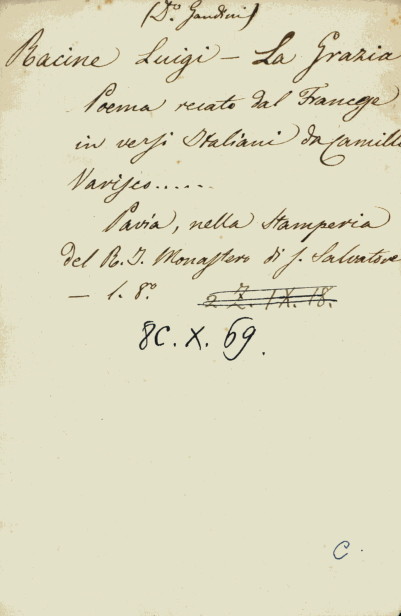 (D.º Gandini)
Racine Luigi - La Grazia
Poema recato dal Francese
in versi Italiani da Camillo
Varisco.....
Pavia, nella Stamperia
del R. I. Monastero di S. Salvatore
- 1. 8º.
8C. X. 69.
C.